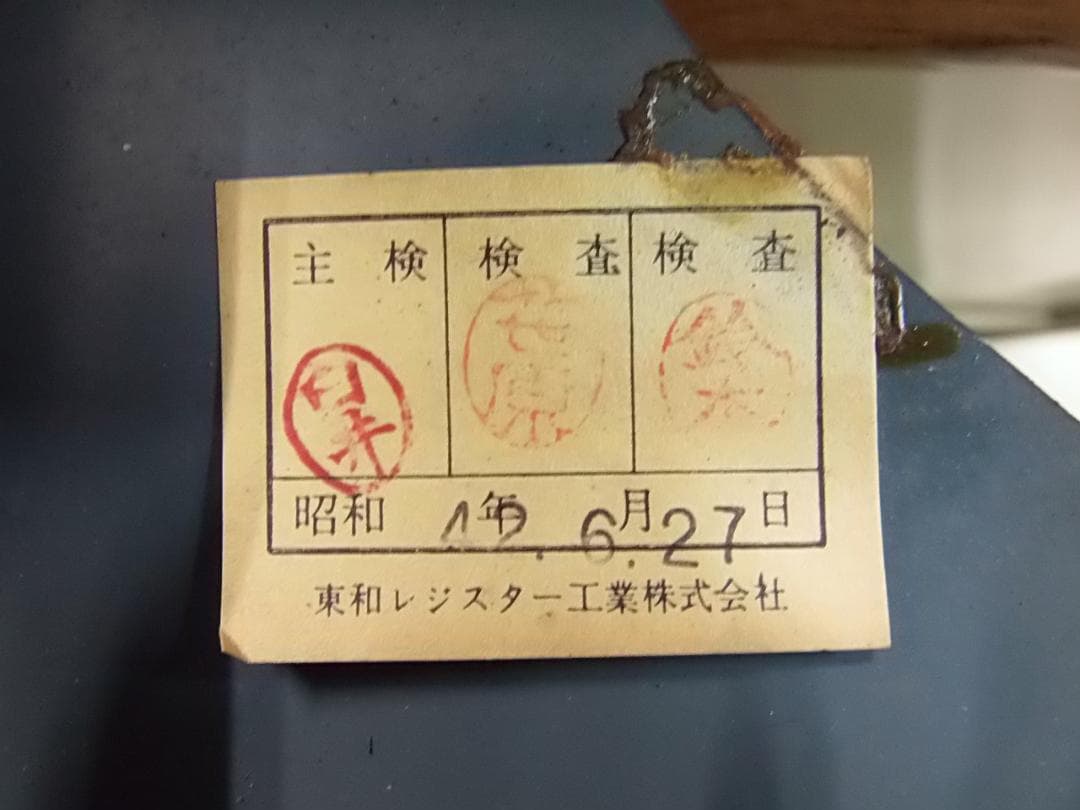 主検 検査 検査
昭和 42年 6月27日
東和レジスター工業株式会社